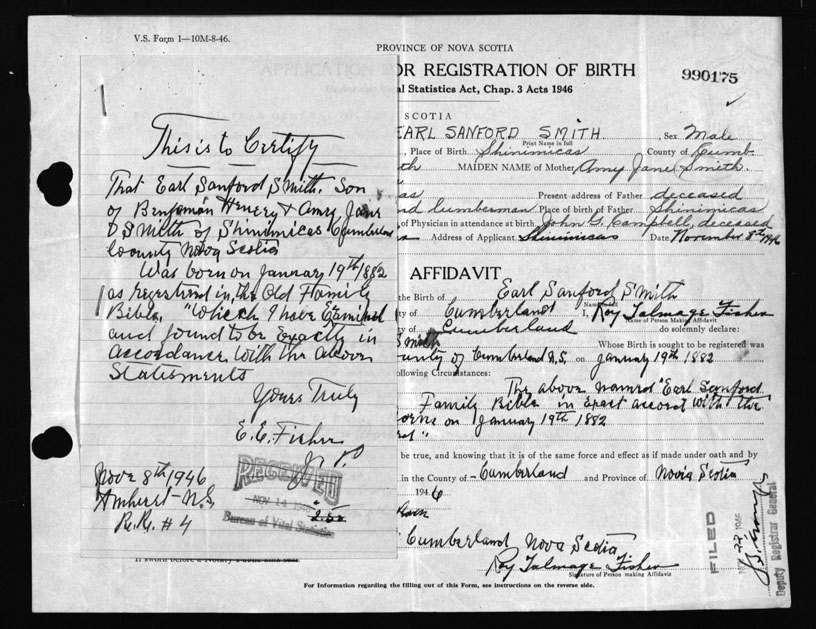 V.S. Form 1—10M-8-46.
PROVINCE OF NOVA SCOTIA
OR REGISTRATION OF BIRTH
990175
al Statistics Act, Chap. 3 Acts 1946
SCOTIA
EARL SANFORD SMITH. , Sex Male
Print Name in full
, Place of Birth Shinimicas County of Cumb.
th MAIDEN NAME of Mother Amy Jane Smith.
as Present address of Father deceased
nd Lumberman Place of birth of Father Shinimicas
of Physician in attendance at birth John G. Campbell, deceased
Address of Applicant Shinimicas Date November 8th 1946
This is to Certify
That Earl Sanford Smith. Son
of Benjamin Henery & Amy Jane
Smith of Shinimicas Cumberland
County Nova Scotia
Was born on January 19th 1882
as registered in the Old Family
Bible. "Which I have Exmined
and found to be Exactly in
accordance with the above
Statements
Yours Truly
E. E. Fisher
J P
Nov 8th 1946
Amherst N.S
R.R. # 4
RECEIVED
NOV 14
Bureau of Vital Statistics
AFFIDAVIT
the Birth of Earl Sanford Smith
of Cumberland I, Roy Talmage Fisher
Name of Person Making Affidavit
ty of Cumberland do solemnly declare:
Smith Whose birth is sought to be registered was
unty of Cumberland N.S, on January 19th 1882
ollowing Circumstances:
The above named "Earl Sanford
Family Bible in Exact accord with the
orns on January 19th 1882
"
be true, and knowing that it is of the same force and effect as if made under oath and by
in the County of Cumberland and Province of Novia Scotia
1946
Cumberland Nova Scotia
Roy Talmage Fisher
Signature of Person making Affidavit
For Information regarding the filling out of this Form, see instructions on the reverse side.
FILED
Deputy Registrar General